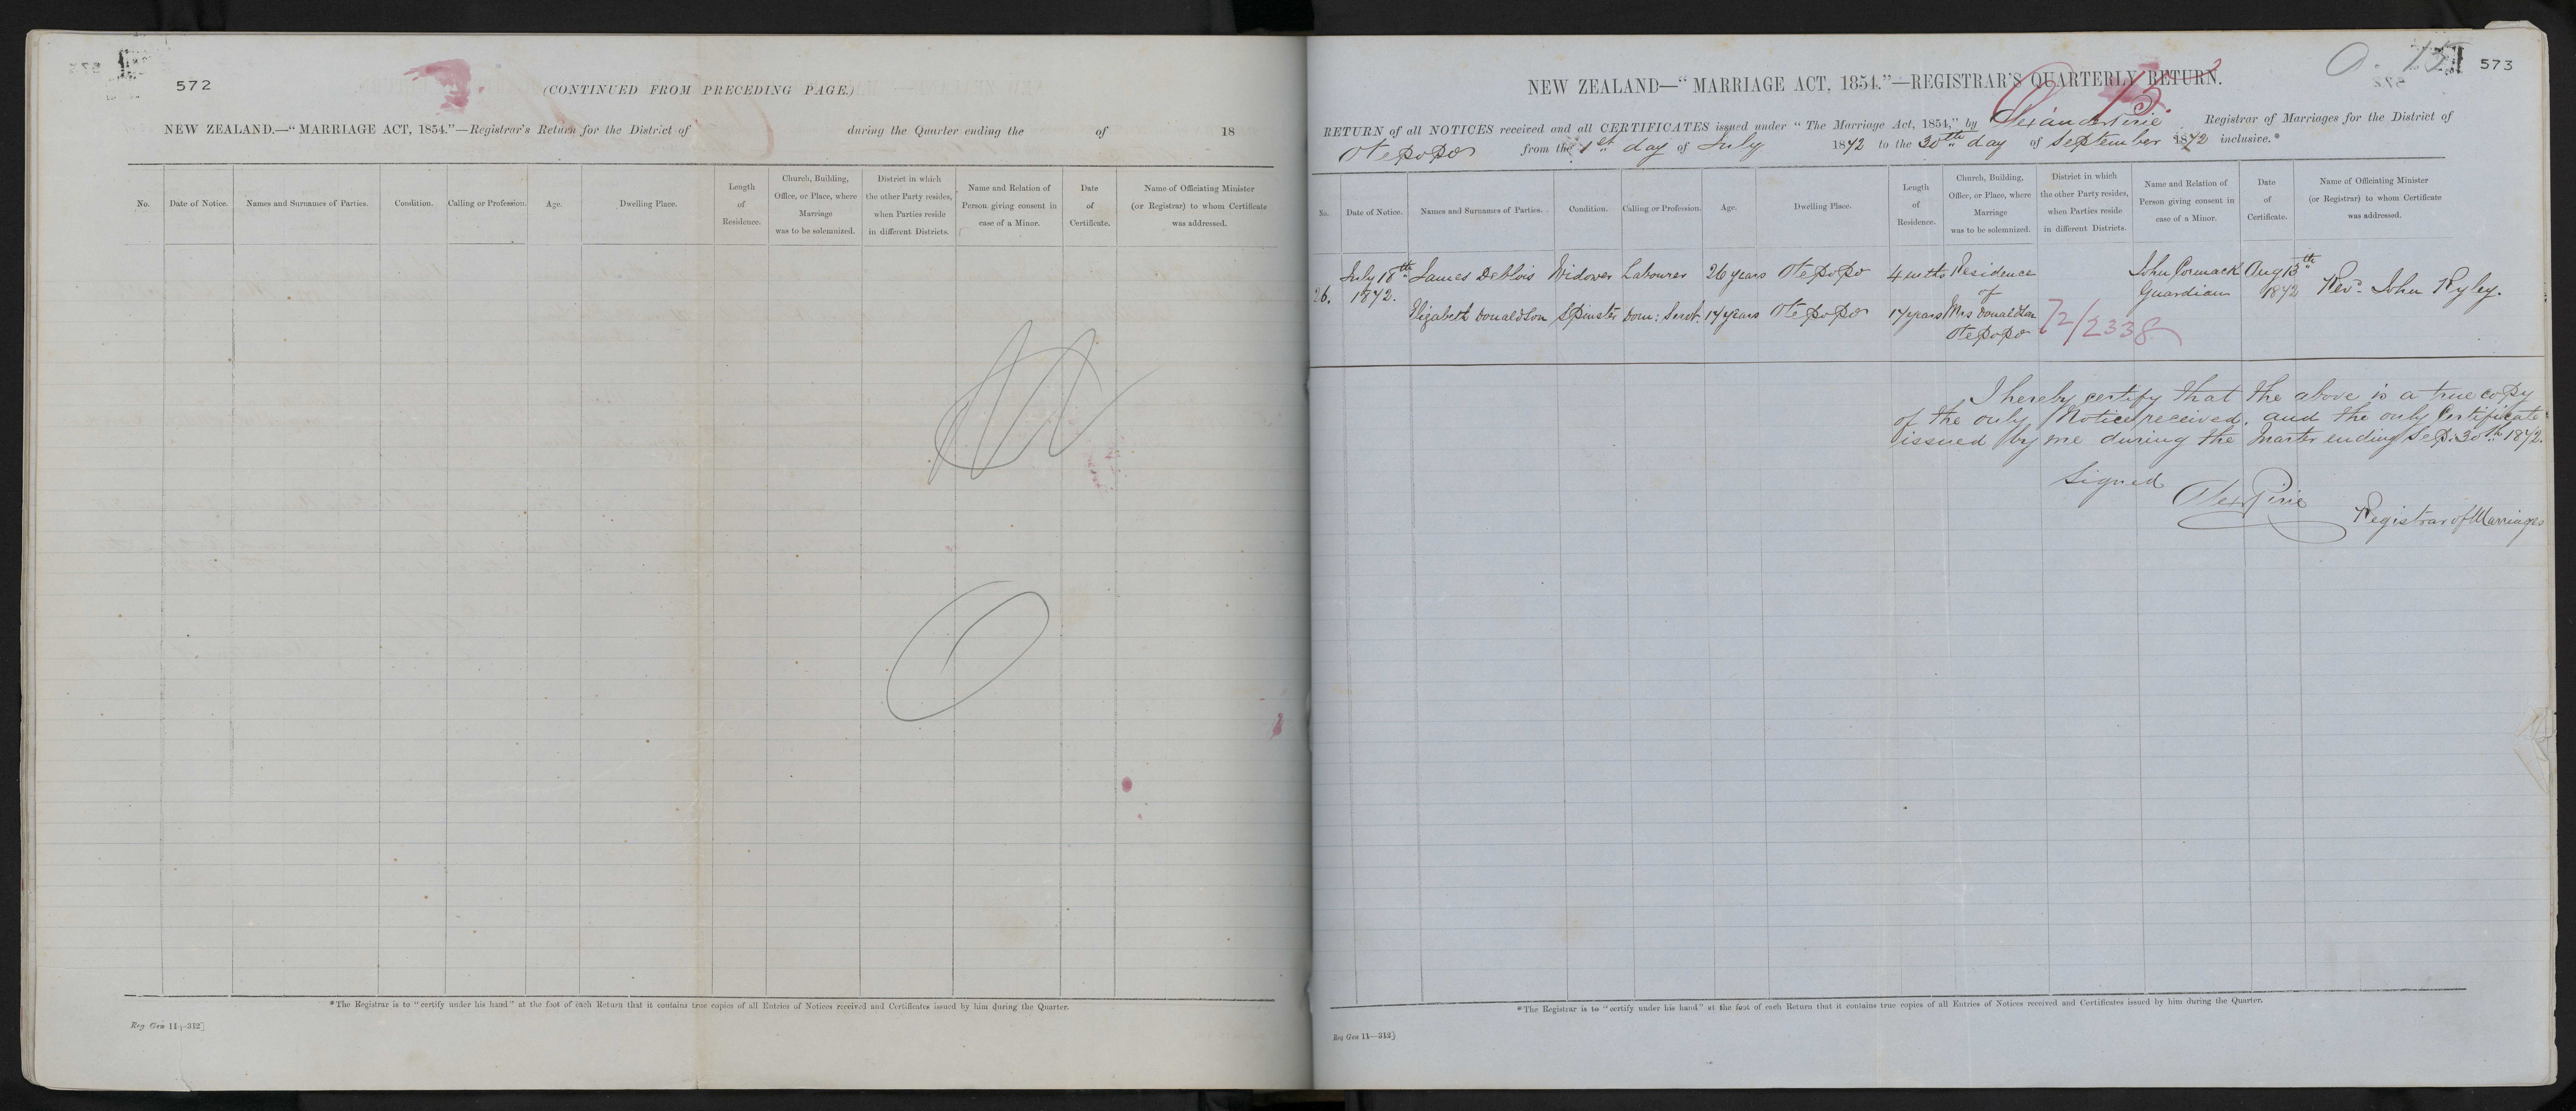 572
(CONTINUED FROM PRECEDING PAGE.)
NEW ZEALAND.—“MARRIAGE ACT, 1854.”—Registrar's Return for the District of during the Quarter ending the of 18
No.
Date of Notice.
Names and Surnames of Parties.
Condition.
Calling or Profession.
Age.
Dwelling Place.
Length
of
Residence.
Church, Building,
Office, or Place, where
Marriage
was to be solemnized.
District in which
the other Party resides,
when Parties reside
in different Districts.
Name and Relation of
Person giving consent in
case of a Minor.
Date
of
Certificate.
Name of Officiating Minister
(or Registrar) to whom Certificate
was addressed.
*The Registrar is to “certify under his hand” at the foot of each Return that it contains true copies of all Entries of Notices received and Certificates issued by him during the Quarter.
Reg Gen 11—312]
O. 15
573
NEW ZEALAND—“MARRIAGE ACT, 1854.”—REGISTRAR'S QUARTERLY RETURN.
RETURN of all NOTICES received and all CERTIFICATES issued under “The Marriage Act, 1854,” by Alexander Pirie Registrar of Marriages for the District of
Otepopo from the 1st day of July 1872 to the 30th day of September 1872 inclusive.*
No.
Date of Notice.
Names and Surnames of Parties.
Condition.
Calling or Profession.
Age.
Dwelling Place.
Length
of
Residence.
Church, Building,
Office, or Place, where
Marriage
was to be solemnized.
District in which
the other Party resides,
when Parties reside
in different Districts.
Name and Relation of
Person giving consent in
case of a Minor.
Date
of
Certificate.
Name of Officiating Minister
(or Registrar) to whom Certificate
was addressed.
July 18th James Deblois Widower Labourer 26 years Otepopo 4 mnths Residence John Cormack Aug 13th
26. 1872. of Guardian 1872 Rev. John Ryley.
Elizabeth Donaldson Spinster Dom: Servt. 17 years Otepopo 17 years Mrs Donaldson
Otepopo 72/2338
I hereby certify that the above is a true copy
of the only Notice received, and the only Certificate
issued by me during the Quarter ending Sep: 30th 1872.
Signed
Alex Pirie
Registrar of Marriages
*The Registrar is to “certify under his hand” at the foot of each Return that it contains true copies of all Entries of Notices received and Certificates issued by him during the Quarter.
Reg Gen 11—312]